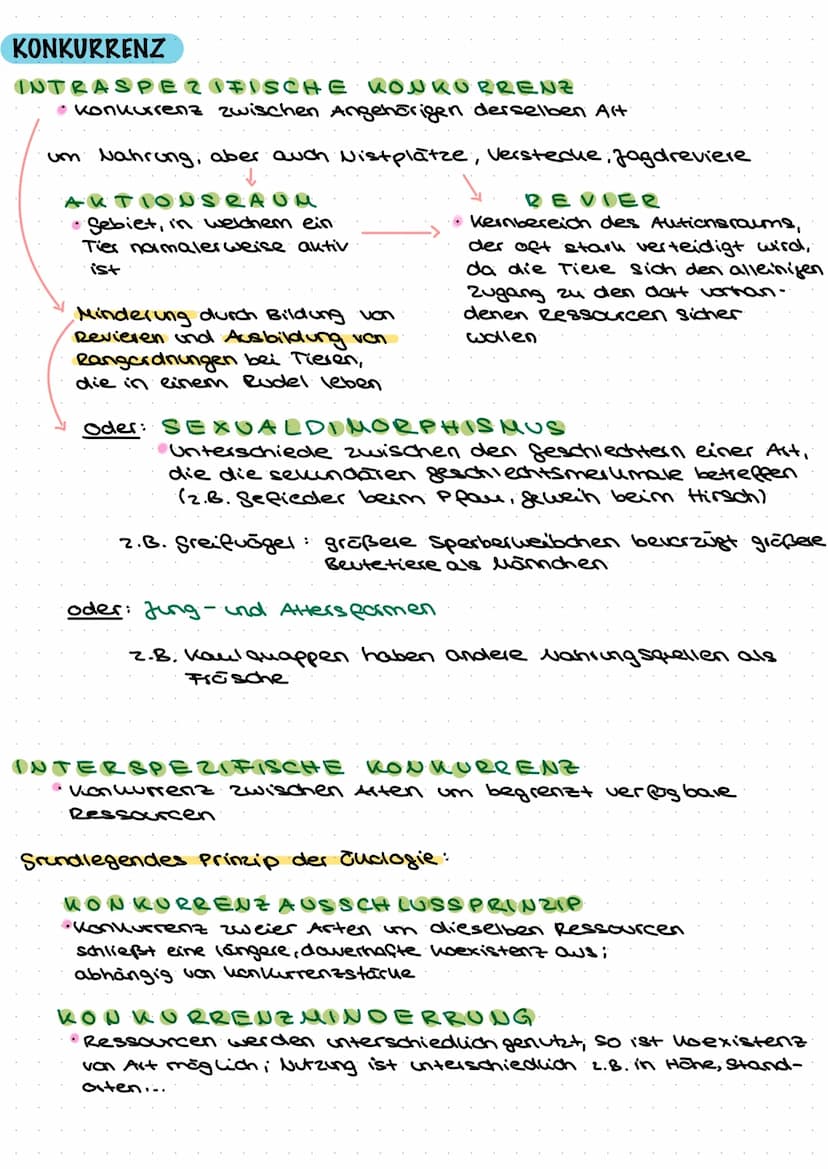 KONKURRENZ
INTRASPEZIFISCHE KONKURRENZ
• Konkurrenz zwischen Angehörigen derselben Art
um Nahrung, aber auch Nistplätze, Verstecke, Jagdreviere
AKTIONSRAUM
• Gebiet, in welchem ein
Tier normalerweise aktiv
ist
REVIER
• Kernbereich des Aktionsraums,
der oft stark verteidigt wird,
da die Tiere sich den alleinigen
Zugang zu den dort vorhan-
denen Ressourcen sicher
wollen
Minderung durch Bildung von
Revieren und Ausbildung von
Rangordnungen bei Tieren,
die in einem Rudel leben
oder: SEXUALDIMORPHISMUS
• Unterschiede zwischen den Geschlechtern einer Art,
die die sekundären Geschlechtsmerkmale betreffen
(z.B. Gefieder beim Pfau, Geweih beim Hirsch)
z.B. Greifvögel: größere Sperberweibchen bevorzugt größere
Beutetiere als Männchen
oder: Jung- und Altersformen
z.B. Kaulquappen haben andere Nahrungsquellen als
Frösche
INTERSPEZIFISCHE KONKURRENZ
• Konkurrenz zwischen Arten um begrenzt verfügbare
Ressourcen
Grundlegendes Prinzip der Ökologie:
KONKURRENZAUSSCHLUSSPRINZIP
• Konkurrenz zweier Arten um dieselben Ressourcen
schließt eine längere, dauerhafte Koexistenz aus;
abhängig von Konkurrenzstärke
KONKURRENZMINDERRUNG
• Ressourcen werden unterschiedlich genutzt, so ist Koexistenz
von Art möglich; Nutzung ist unterschiedlich z.B. in Höhe, Stand-
orten...